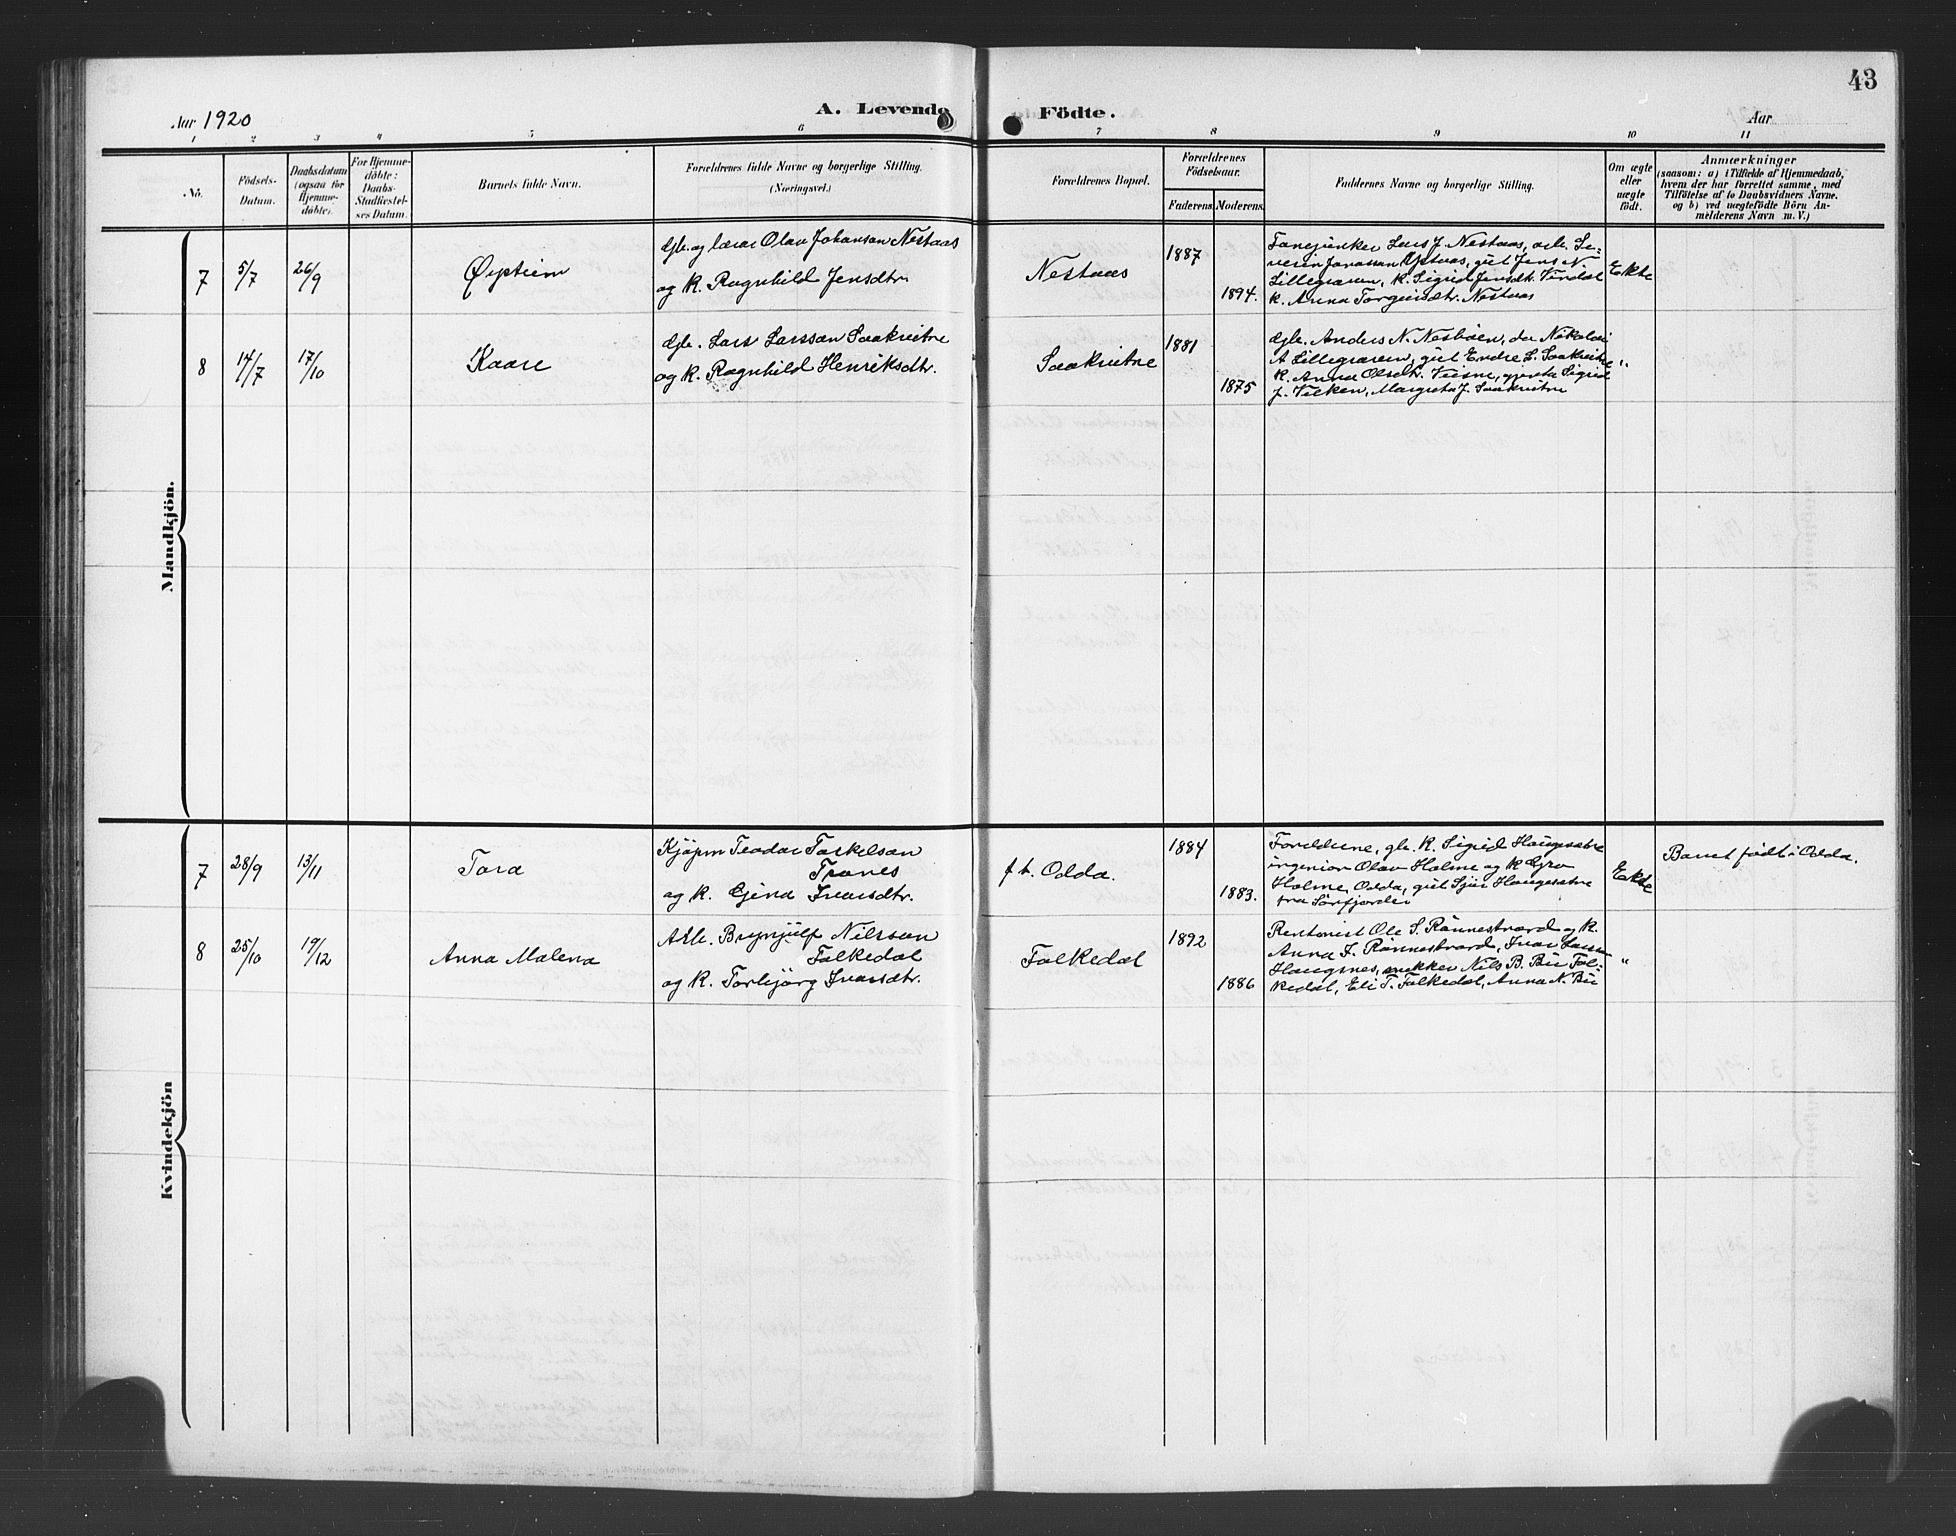 43
Aar 1920
A. Levende
Födte.
Aar
1 2 3 4 5 6 7 8 9 10 11
No.
Födsels-
Datum.
Daabsdatum
(ogsaa for
Hjemme-
döbte).
For Hjemme-
döbte:
Daabs-
Stadfæstel-
ses Datum.
Barnets fulde Navn.
Forældrenes fulde Navne og borgerlige Stilling.
(Næringsvei.)
Forældrenes Bopæl.
Forældrenes
Födselsaar.
Faderens. Moderens.
Faddernes Navne og borgerlige Stilling.
Om ægte
eller
uægte
födt.
Anmærkninger
(saasom: a) i Tilfælde af Hjemmedaab,
hvem der har forrettet samme, med
Tilföielse af to Daabsvidners Navne.
og b) ved uægtefödte Börn An-
melderens Navn m. V.)
Mandkjön.
7 5/7 26/9 Øystein
Gb. og lærar Olav Johanson Nestaas
og k. Ragnhild Jensdtr.
Nestaas
1887
1894.
Fanejunker Lars J. Nestaas, arb. Se-
verin Jonassan Ystaas, gut Jens N
Lillegraven, k. Sigrid Jensdt. Vindal
k. Anna Torgeirsdtr. Nestaas
Ekte
8 14/7 17/10 Kaare
Gb. Lars Larssan Saakvitne
og k. Ragnhild Henriksdtr.
Saakvitne
1881
1875
Gb. Anders N. Nesbøen, do Nikolai
A Lillegraven, gut Endre L. Saakvitne
k. Anna Olsdtr. Veisne, gjenta Sigrid
J. Vilken, Margreta J. Saakvitne
"
Kvindekjön
7 28/9 13/11 Tora
Kjøpm Teodor Torkelson
Tranes
og k. Gjina Ivarsdtr.
f t. Odda.
1884
1883.
Foreldrene, gb. k. Sigrid Haugsætre
ingeniør Olav Holme og k Gro
Holme, Odda, gut Sjur Haugsætre
fra Sørfjorden
Ekte
Barnet født i Odda.
8 25/10 19/12 Anna Malena
Arb. Brynjulf Nilsson
Folkedal
og k. Torbjørg Ivarsdtr.
Folkedal
1892
1886
Rentenist Ole S. Rønnestrand og k.
Anna I. Rønnestrand, Ivar Larsson
Haugsnes, enkker Nils B. Bu Fol-
kedal, Eli T. Folkedal, Anna N. Bu
"